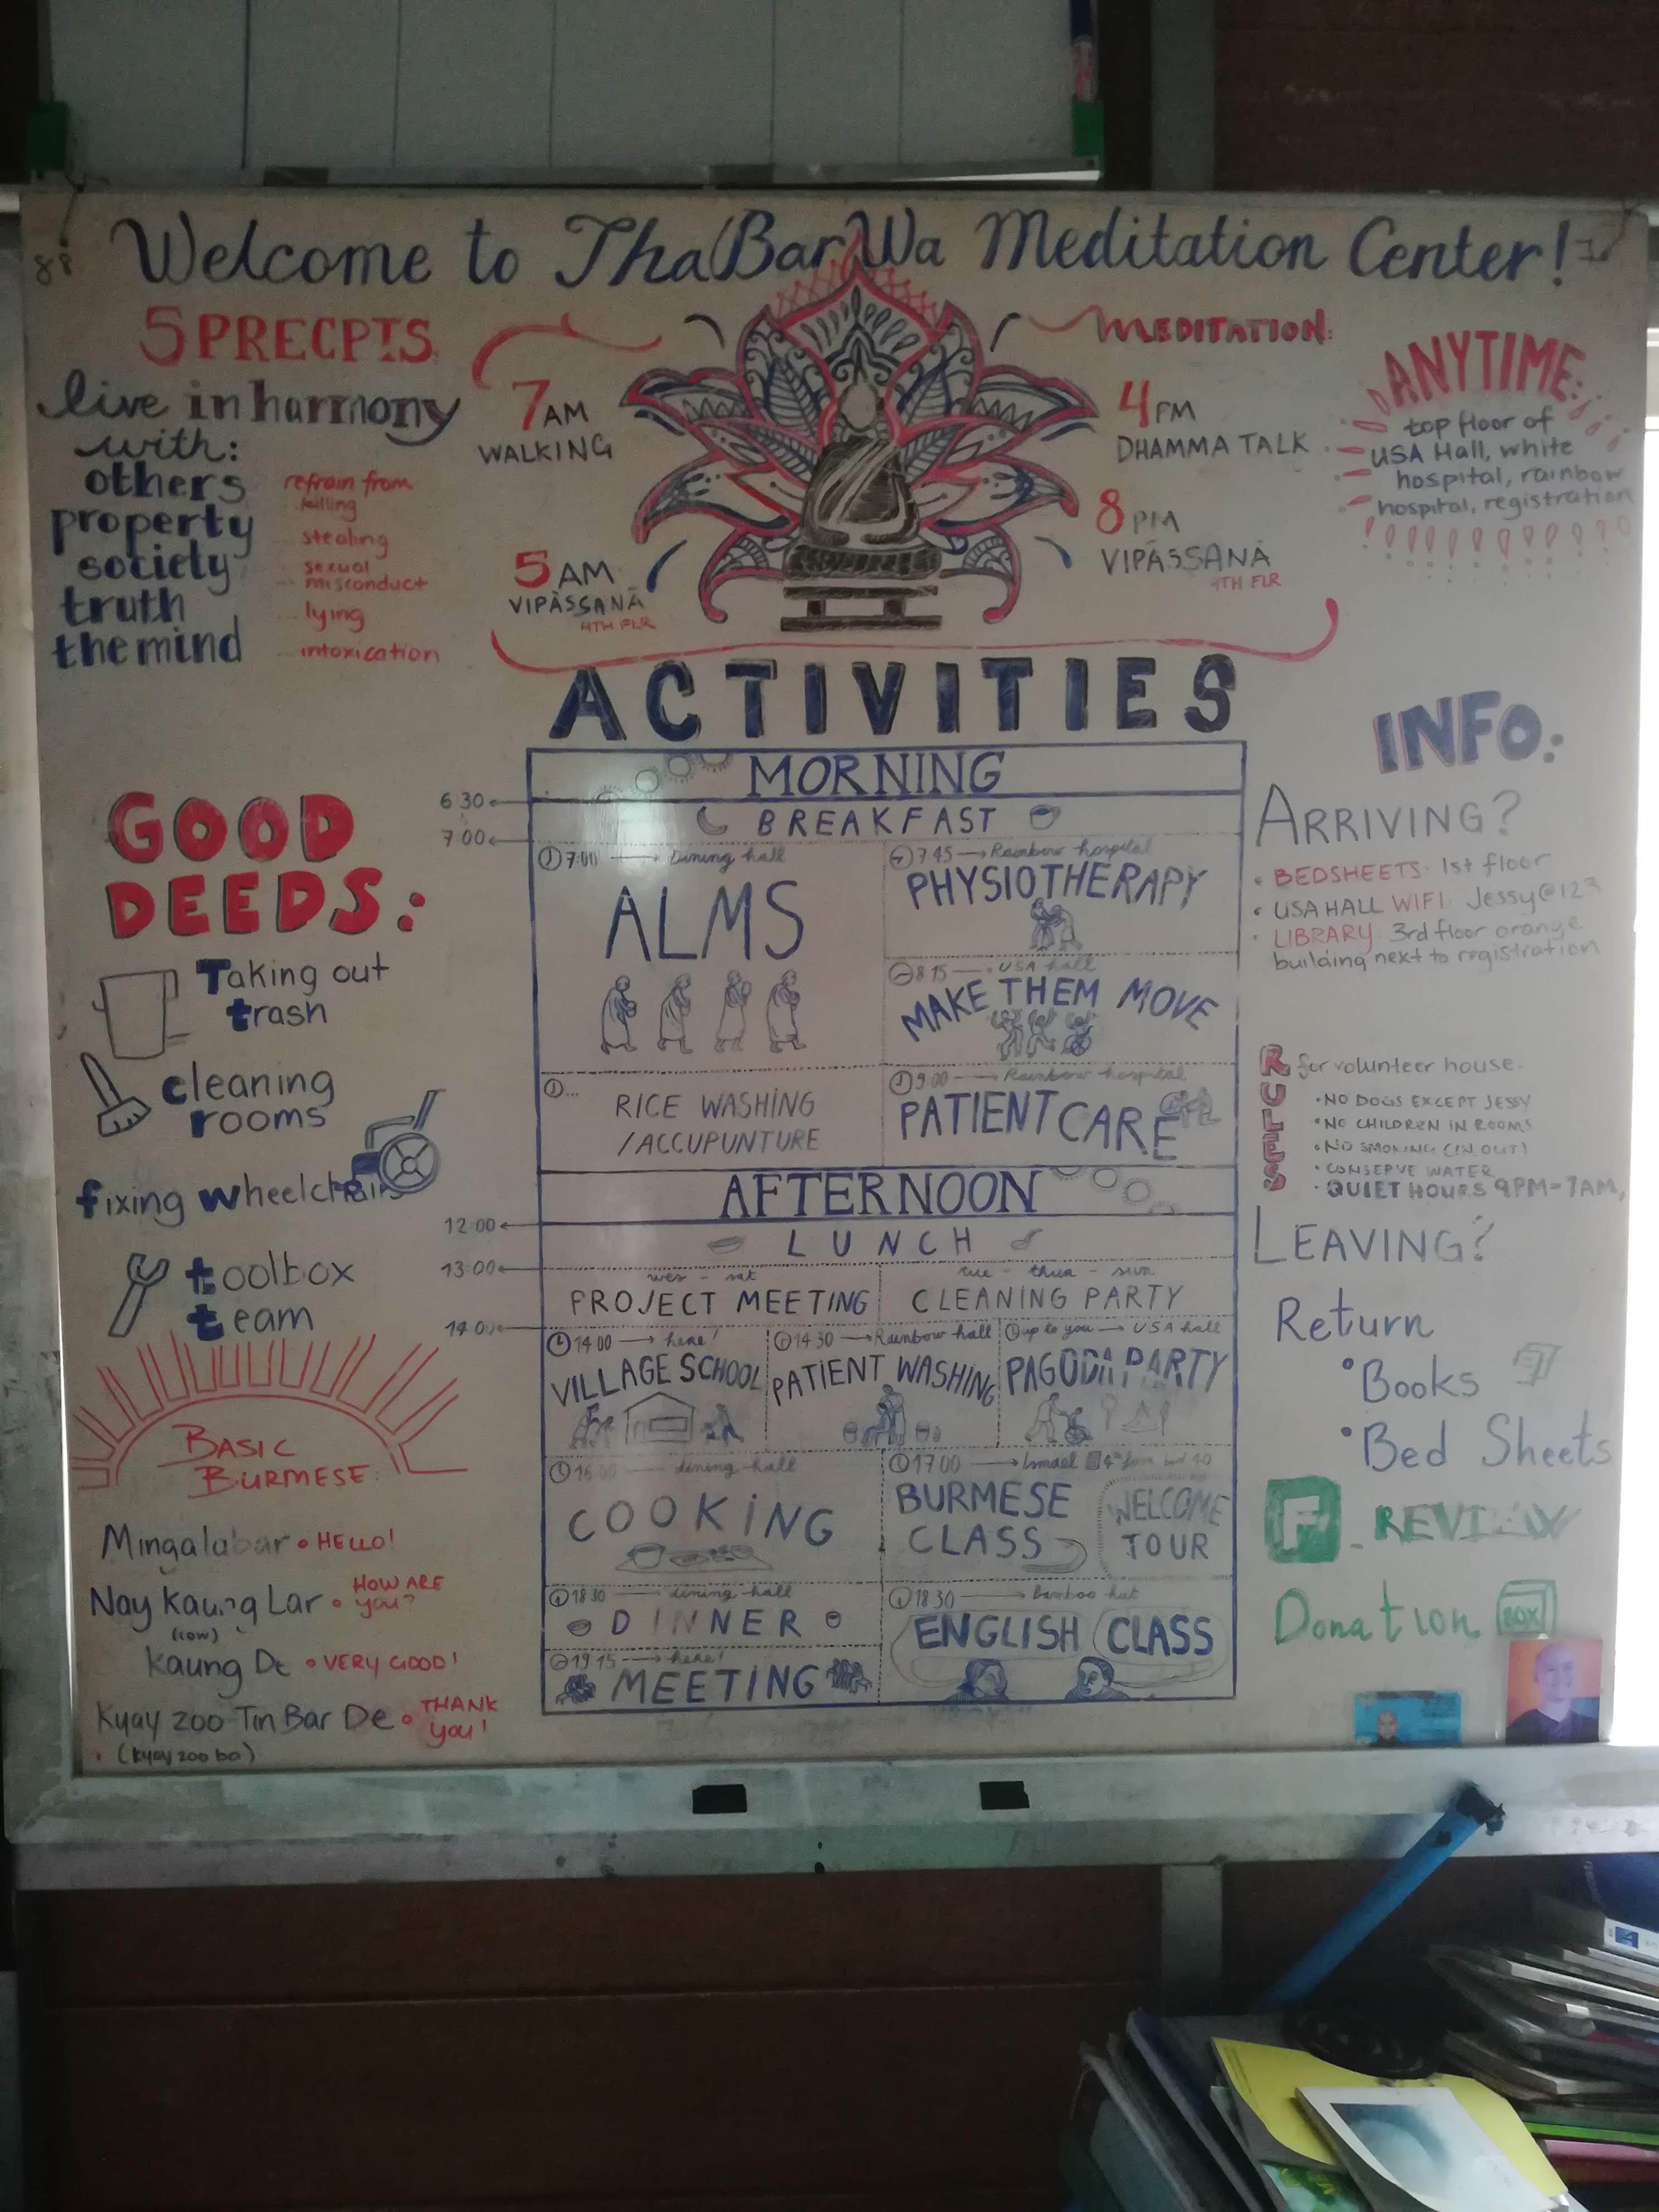 Welcome to ThaBarWa Meditation Center!
5 PRECPTS
live in harmony
with:
others refrain from killing
property ... stealing
society ... sexual misconduct
truth ... lying
the mind ... intoxication
MEDITATION:
7 AM
WALKING
5 AM
VIPĀSSANĀ
4TH FLR
4 PM
DHAMMA TALK
8 PM
VIPĀSSANĀ
4TH FLR
ANYTIME:
top floor of
USA Hall, white
hospital, rainbow
hospital, registration
!!!!!!!!!!!!
GOOD
DEEDS:
Taking out
trash
cleaning
rooms
fixing wheelchairs
toolbox
team
BASIC
BURMESE:
Mingalabar • HELLO!
Nay Kaung Lar • HOW ARE YOU?
(low)
Kaung De • VERY GOOD!
Kyay zoo Tin Bar De • THANK you!
• (kyay zoo ba)
ACTIVITIES
MORNING
6:30
BREAKFAST
7:00
7:00 → Dining hall
ALMS
7:45 → Rainbow hospital
PHYSIOTHERAPY
8:15 → USA hall
MAKE THEM MOVE
...
RICE WASHING
/ACCUPUNTURE
9:00 → Rainbow hospital
PATIENT CARE
AFTERNOON
12:00
LUNCH
13:00
wes - sat
PROJECT MEETING
tue - thur - sun
CLEANING PARTY
14:00
14:00 → here!
VILLAGE SCHOOL
14:30 → Rainbow hall
PATIENT WASHING
up to you → USA hall
PAGODA PARTY
16:00 dining hall
COOKING
17:00 → Ismael
BURMESE
CLASS
WELCOME
TOUR
18:30 dining hall
DINNER
19:15 → here!
MEETING
18:30 → Bamboo hut
ENGLISH CLASS
INFO:
ARRIVING?
• BEDSHEETS: 1st floor
• USA HALL WIFI: Jessy@123
• LIBRARY: 3rd floor orange
building next to registration
RULES for volunteer house.
• NO DOGS EXCEPT JESSY
• NO CHILDREN IN ROOMS
• NO SMOKING (IN OUT)
• CONSERVE WATER
• QUIET HOURS 9PM-7AM,
LEAVING?
Return
• Books
• Bed Sheets
F - REVIEW
Donation BOX